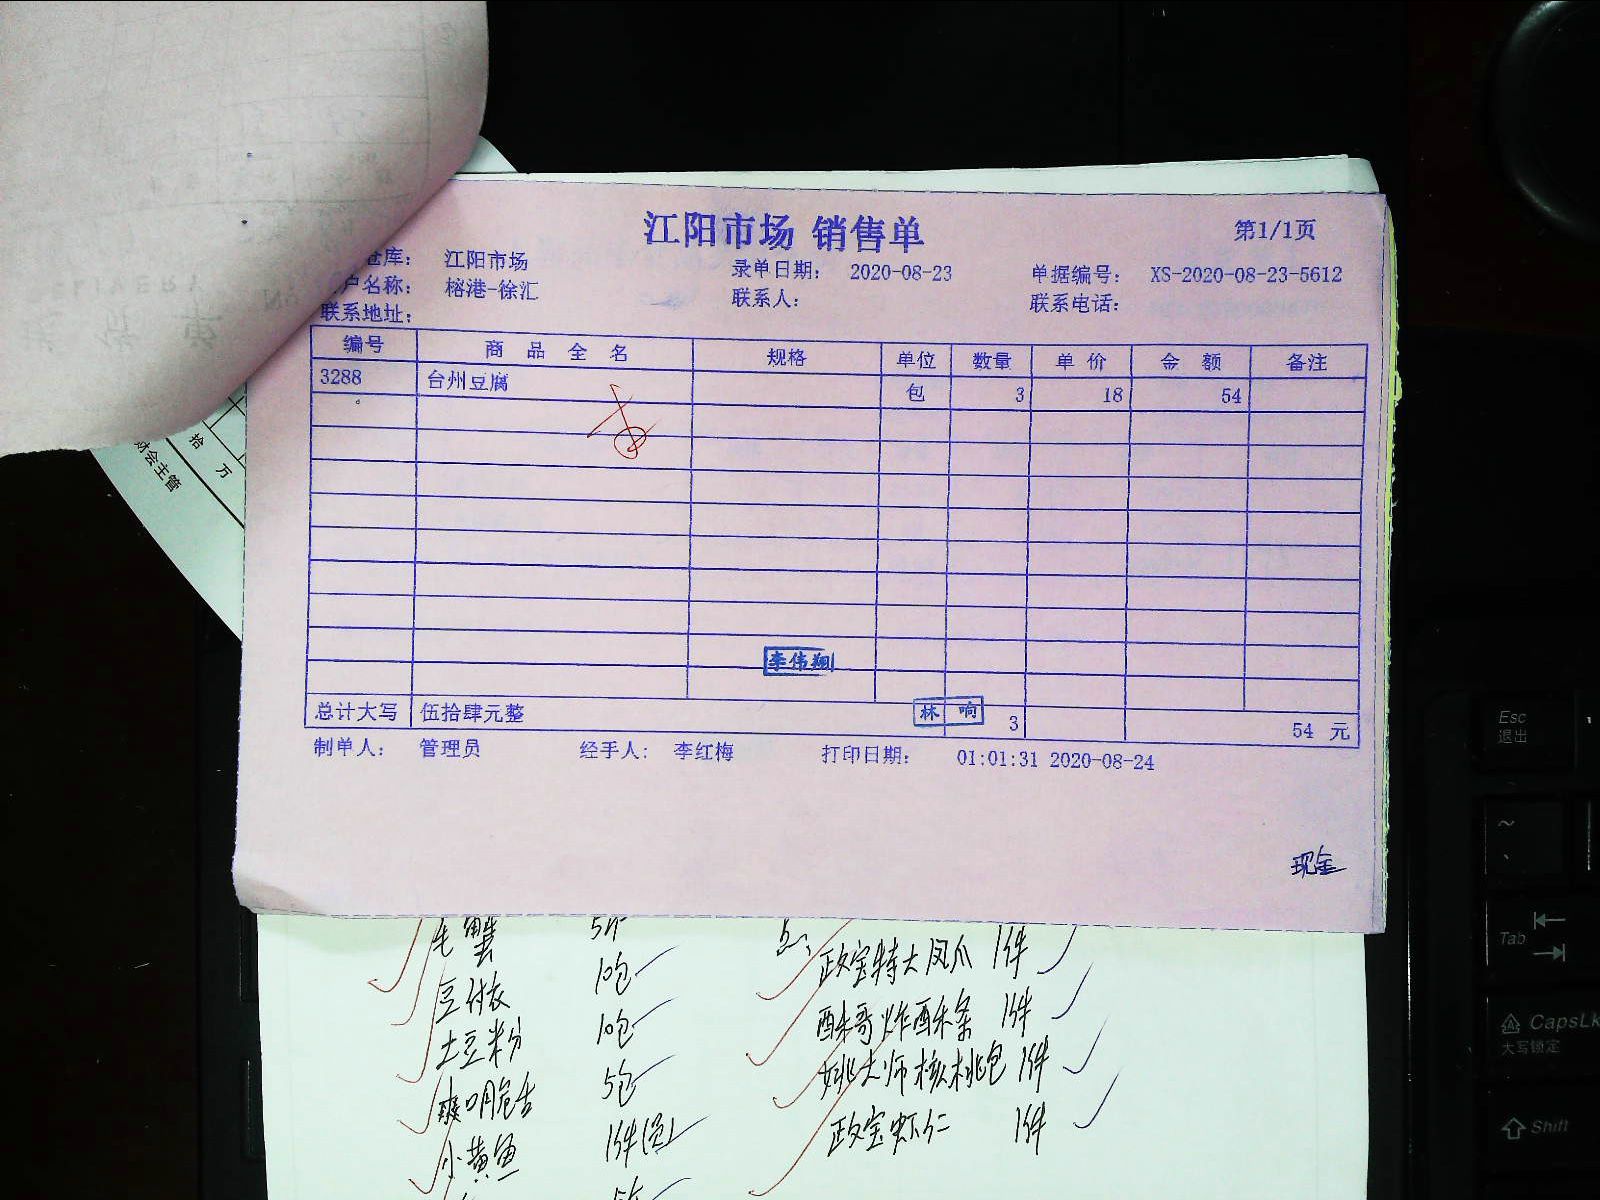 江阳市场 销售单
第1/1页
仓库： 江阳市场
录单日期： 2020-08-23
单据编号： XS-2020-08-23-5612
户名称： 榕港-徐汇
联系人：
联系电话：
联系地址：
编号 商品全名 规格 单位 数量 单价 金额 备注
3288 台州豆腐 包 3 18 54
李伟翔
总计大写 伍拾肆元整 林响 3 54 元
制单人： 管理员 经手人： 李红梅 打印日期： 01:01:31 2020-08-24
现金
拾 万
财会主管
豆付衣 10包
土豆粉 10包
5包
小黄鱼 1件
政宝特大凤爪 1件
酥哥炸酥条 1件
姚大师核桃包 1件
政宝虾仁 1件
Esc
退出
~
Tab
CapsLk
大写锁定
Shift